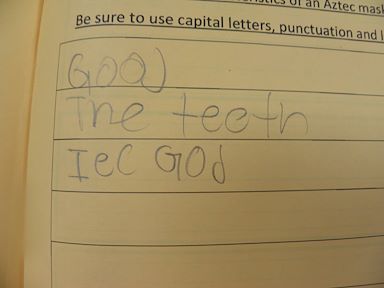 cteristics of an Aztec mask
Be sure to use capital letters, punctuation and l
Good
The teeth
Iec God